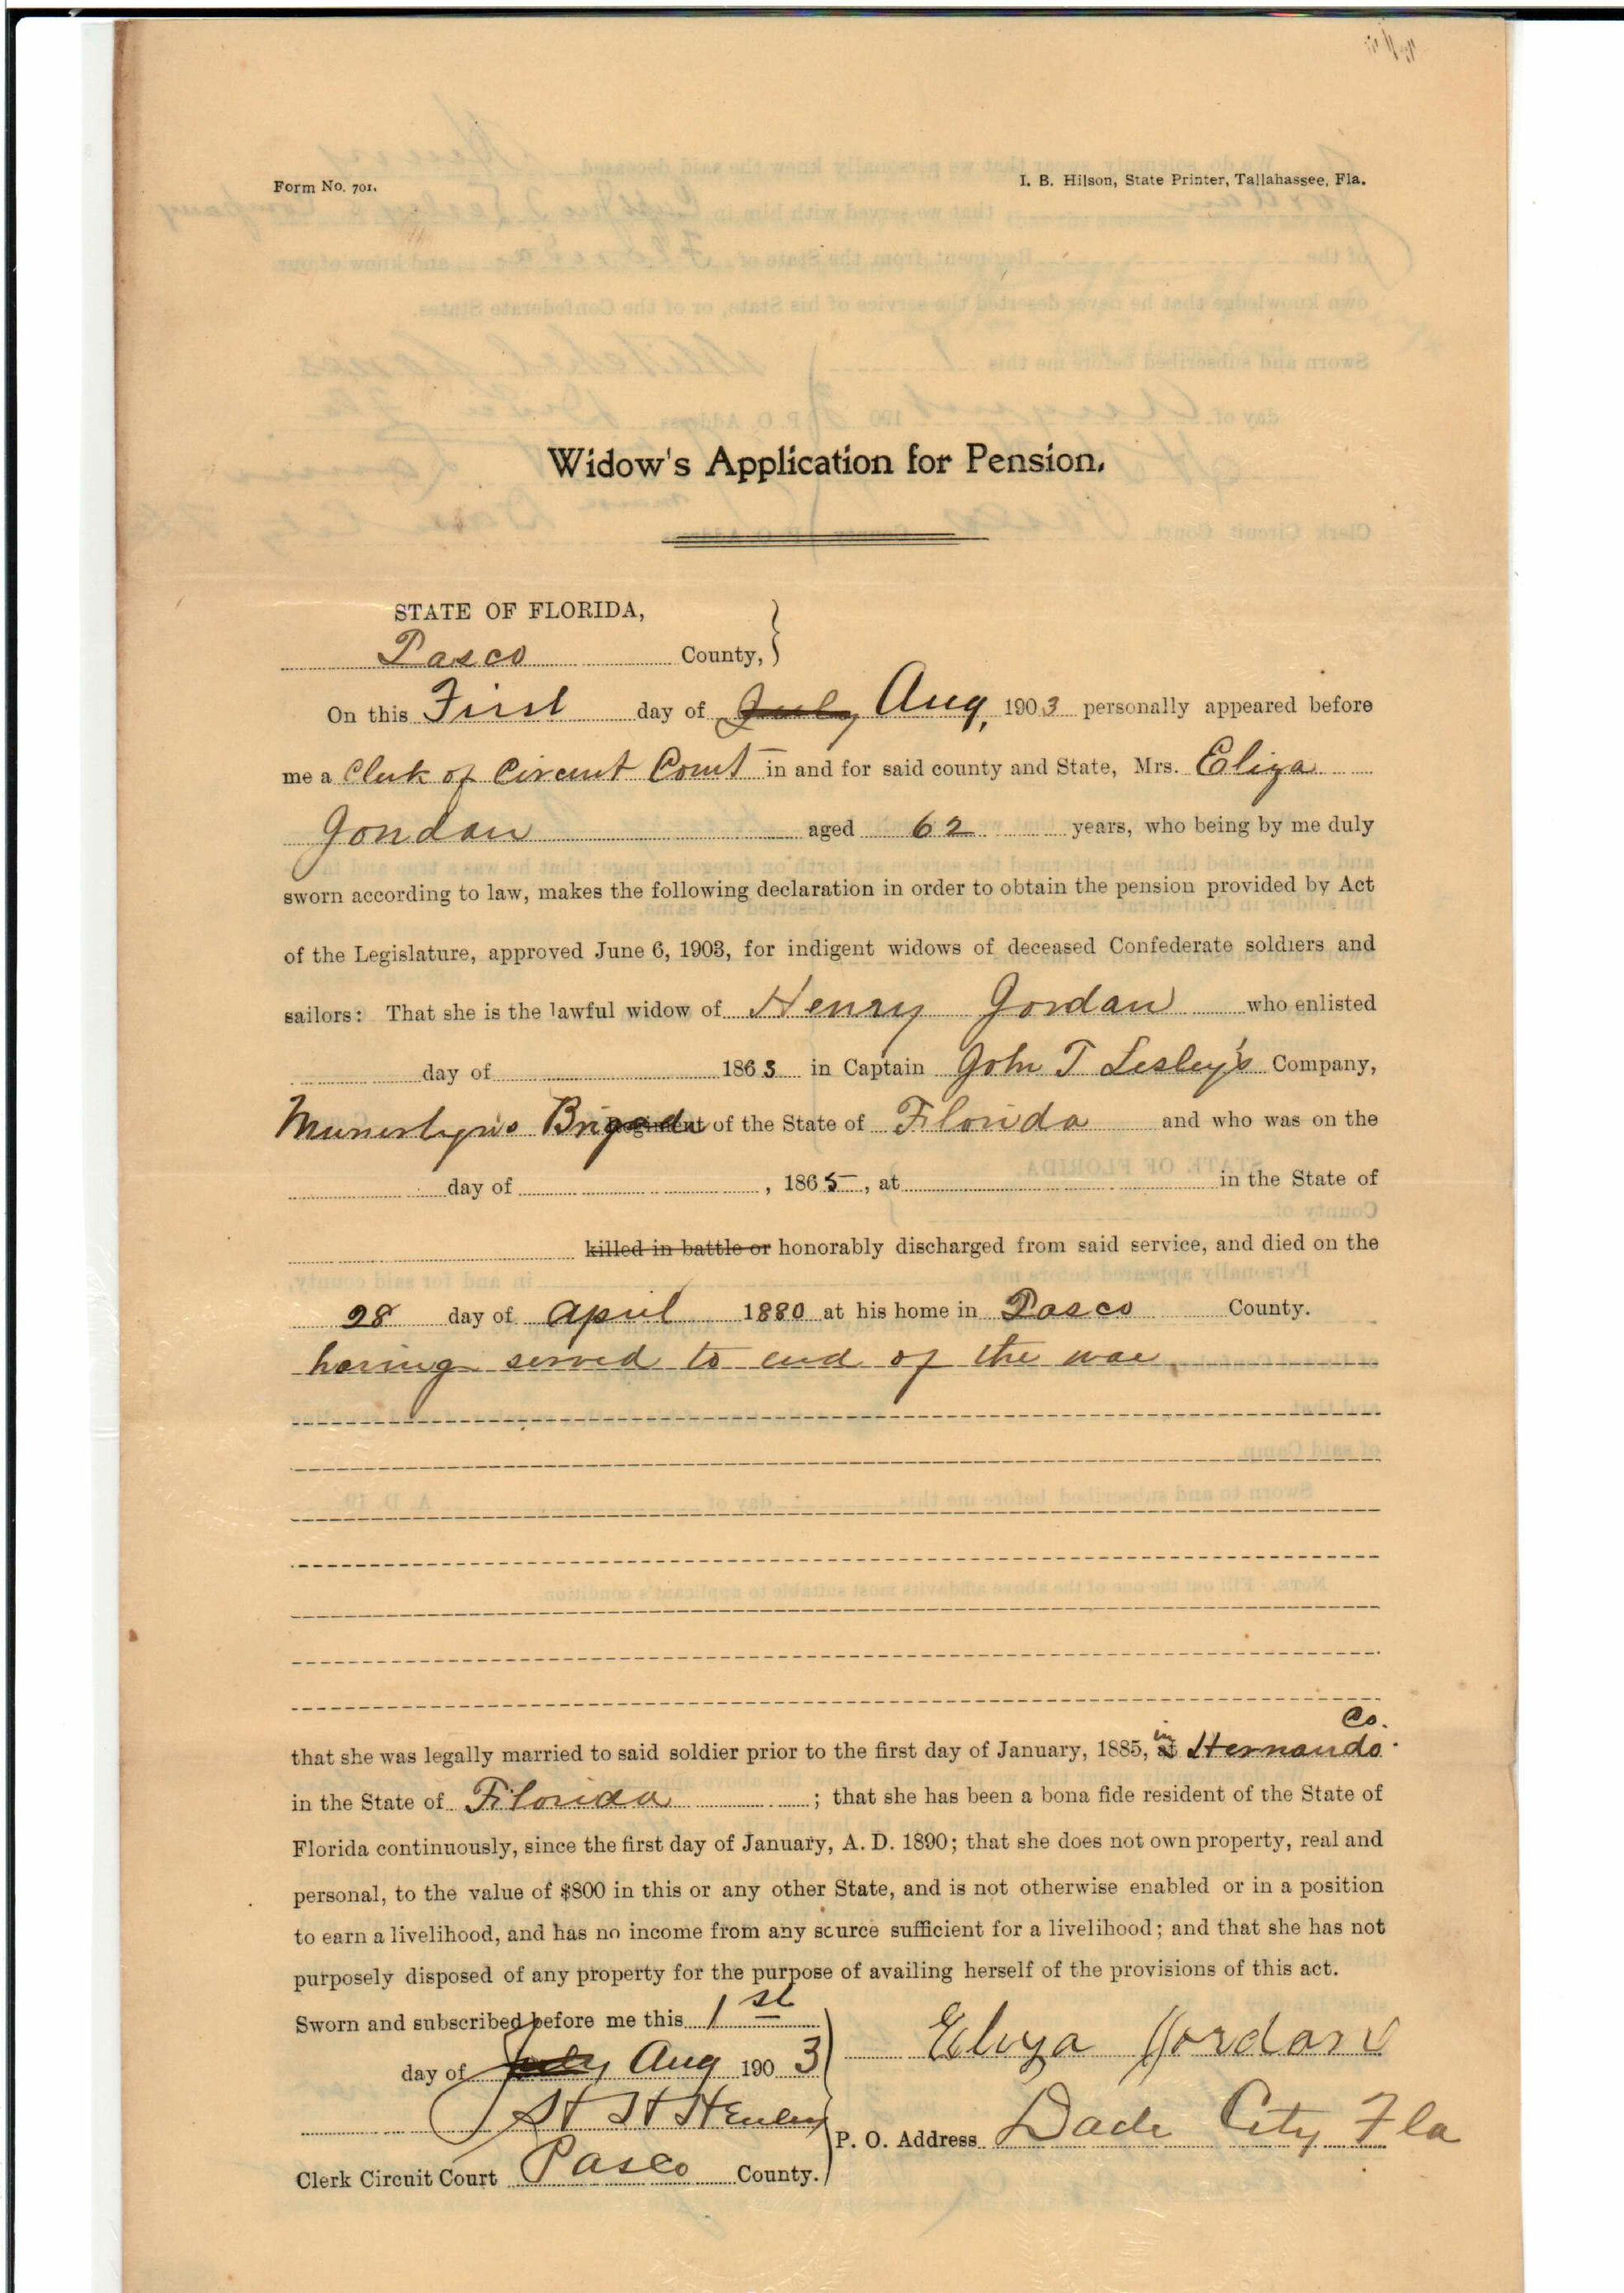 Form No. 701.
I. B. Hilson, State Printer, Tallahassee, Fla.
Widow's Application for Pension.
STATE OF FLORIDA,
Pasco County,
On this First day of July Aug, 1903 personally appeared before
me a Clerk of Circuit Court in and for said county and State, Mrs. Eliza
Jordan aged 62 years, who being by me duly
sworn according to law, makes the following declaration in order to obtain the pension provided by Act
of the Legislature, approved June 6, 1903, for indigent widows of deceased Confederate soldiers and
sailors: That she is the lawful widow of Henry Jordan who enlisted
day of 1863 in Captain John T Lesley's Company,
Munerlyn's Brigade of the State of Florida and who was on the
day of , 1865, at in the State of
killed in battle or honorably discharged from said service, and died on the
28 day of April 1880 at his home in Pasco County.
having served to end of the war
that she was legally married to said soldier prior to the first day of January, 1885, in Hernando Co.
in the State of Florida ; that she has been a bona fide resident of the State of
Florida continuously, since the first day of January, A. D. 1890; that she does not own property, real and
personal, to the value of $800 in this or any other State, and is not otherwise enabled or in a position
to earn a livelihood, and has no income from any source sufficient for a livelihood; and that she has not
purposely disposed of any property for the purpose of availing herself of the provisions of this act.
Sworn and subscribed before me this 1st
day of July Aug 1903
Eliza Jordan
Henley
P. O. Address Dade City Fla
Clerk Circuit Court Pasco County.